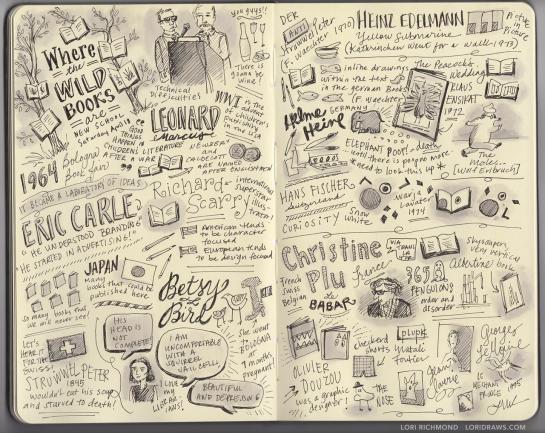 Where
the
WILD
BOOKS
are
NEW SCHOOL
you guys!!
There is
gonna be
wine!
Technical
Difficulties
LEONARD
Marcus
WWI is the
advent
of children's
publishing
in the USA
GOOD
THINGS
HAPPEN IN
CHILDREN'S LITERATURE
AFTER A WAR
NEWBERY
CALDECOTT
ARE NAMED
AFTER ENGLISHMEN
1964 Bologna
Book fair
IT BECAME A LABORATORY OF IDEAS
ERIC CARLE
"HE UNDERSTOOD BRANDING"
"HE STARTED IN ADVERTISING!"
Richard
Scarry
international
superstar
illus-
trator!
American tends
to be character
focused
European tends
to be design focused
JAPAN
Many
books that could be
published here
so many books that
we are never see!
Betsy
Bird
Let's
HEAR IT
FOR THE
SWISS!
HIS
HEAD IS
NOT
COMPLETE!
I AM
UNCOMFORTABLE
WITH A
SQUIRREL
JAIL CELL!
BEAUTIFUL
AND DEPRESSING
She went
to
BOLOGNA
at
7 months
pregnant!
I LOVE
my
LIBRARIANS!
STRUWWELPETER
1845
wouldn't eat his soup
and starved to death!
DER
ANTI
Struwwelpeter
(F. Waechter 1970)
HEINZ EDELMANN
Yellow Submarine
(Kathrinchen went for a walk - 1973)
A Picture
in
Picture
inline drawings
within the text
in the German books
(F. Waechter)
The Peacock's
Wedding
KLAUS
ENSIKAT
1972
Helme
Heine
GERMANY
ELEPHANT POOP = death
until there is people more
need to look this up
The
Moles...
HANS FISCHER
Switzerland
CURIOSITY
Snow
White
1974
Christine
Plu
VIA
France
French
Swiss
Belgian
BABAR
365
PENGUINS
order and
disorder
Skyscrapers
very vertical
Albertine book
OLIVIER
DOUZOU
was a graphic
designer!
checkered
shorts
plupk
Natali
Fortier
THE
NOSE
Georges
LE
MECHANT
PRINCE
1995
LORI RICHMOND LORIDRAWS.COM